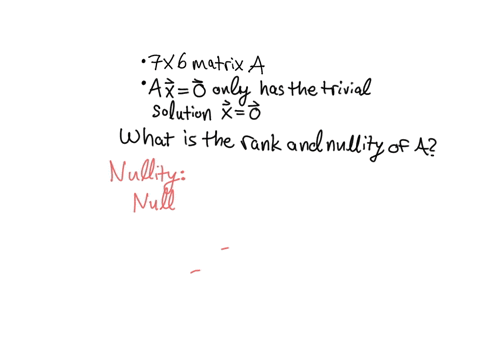 • 7x6 matrix A
• Ax⃗ = 0⃗ only has the trivial
solution x⃗ = 0⃗
What is the rank and nullity of A?
Nullity:
Null